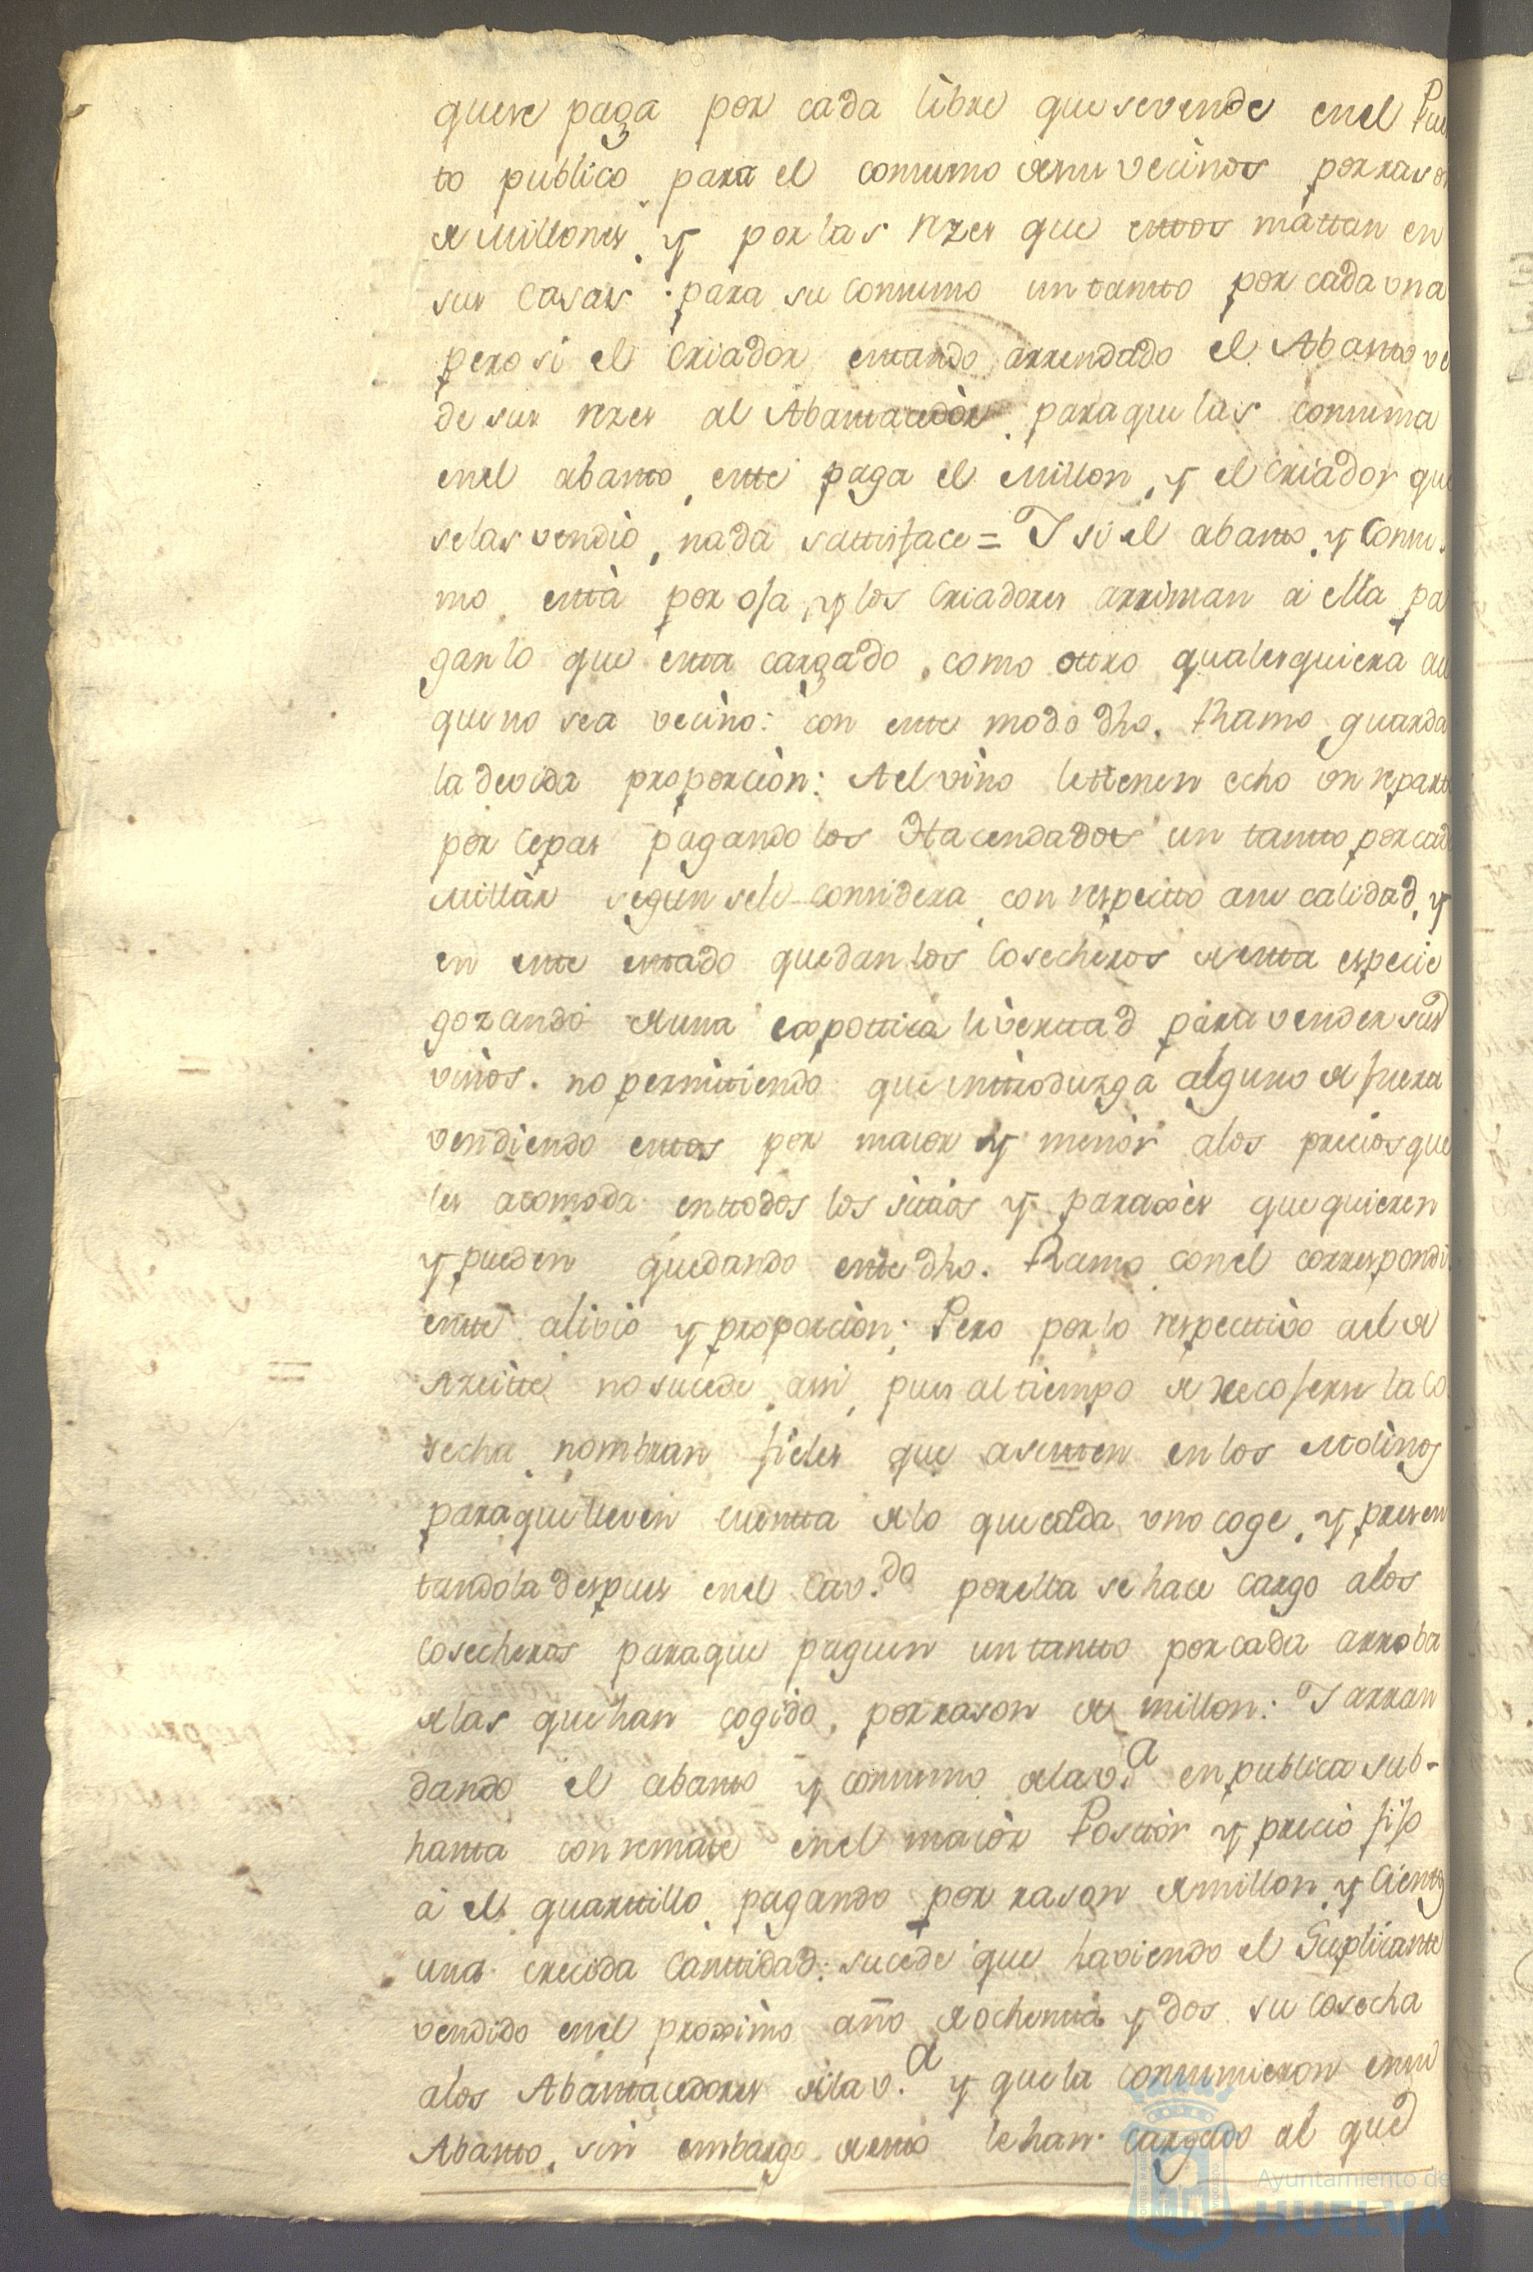 quese paga por cada libre que se vende en el Pues
to publico para el consumo de su vecinos por rason
de Millones, y por las rezes que estos mattan en
sus Casas para su Consumo un tantto por cada una
pero si el Criador esttando arrendado el Abastto ven
de sus rezes al Abasttecedòr para que las consuma
en el abastto, estte paga el Millon, y el Criador que
se las vendiò, nada sattisface = Y si el abastto, y Consu-
mo esttà por oja, y los Criadores arriman à ella pa
gan lo que estta cargado, como ottro qualesquiera au
que no sea vecino: con estte modo dho. Ramo guarda
la devida proporciòn: Ael vino le ttienen echo un repartto
por Cepas pagando los Hacendados un tantto por cada
Millàr segun sele considera con respectto asu calidad, y
en estte esttado quedan los Cosecheros de estta especie
gozando de una expottica liverttad para vender sus
vinos. no permitiendo que inttrodurga alguno de fuera
vendiendo esttos por maior y menòr alos precios que
les acomoda en ttodos los sitios y paraxes que quieren
y pueden quedando estte dho. Ramo con el correspondi
entte alivio y proporciòn; Pero por lo respecttivo ael de
Azeitte no sucede assi, pues al tiempo de recojerse la Co
secha nombran fieles que asistten en los Molinos
para que lleven cuentta de lo que cada uno coge, y presen
tandola despues en el Cav.do por ella se hace cargo alos
Cosecheros para que paguen un tantto por cada arroba
de las que han cogido, por rason de millon: Y arran
dando el abastto y consumo de la v.a en publica sub-
hastta con remate en el maiòr Posttòr y precio fijo
à el quarttillo pagando por rason de millon, y Cientos
una crecida Canttidad: sucede que haviendo el Suplicante
vendido en el proximo año de ochentta y dos su Cosecha
alos Abasttecedores de la v.a y que la consumieron en su
Abastto, sin embargo de estto le han cargado al que
Ayuntamiento de
HUELVA